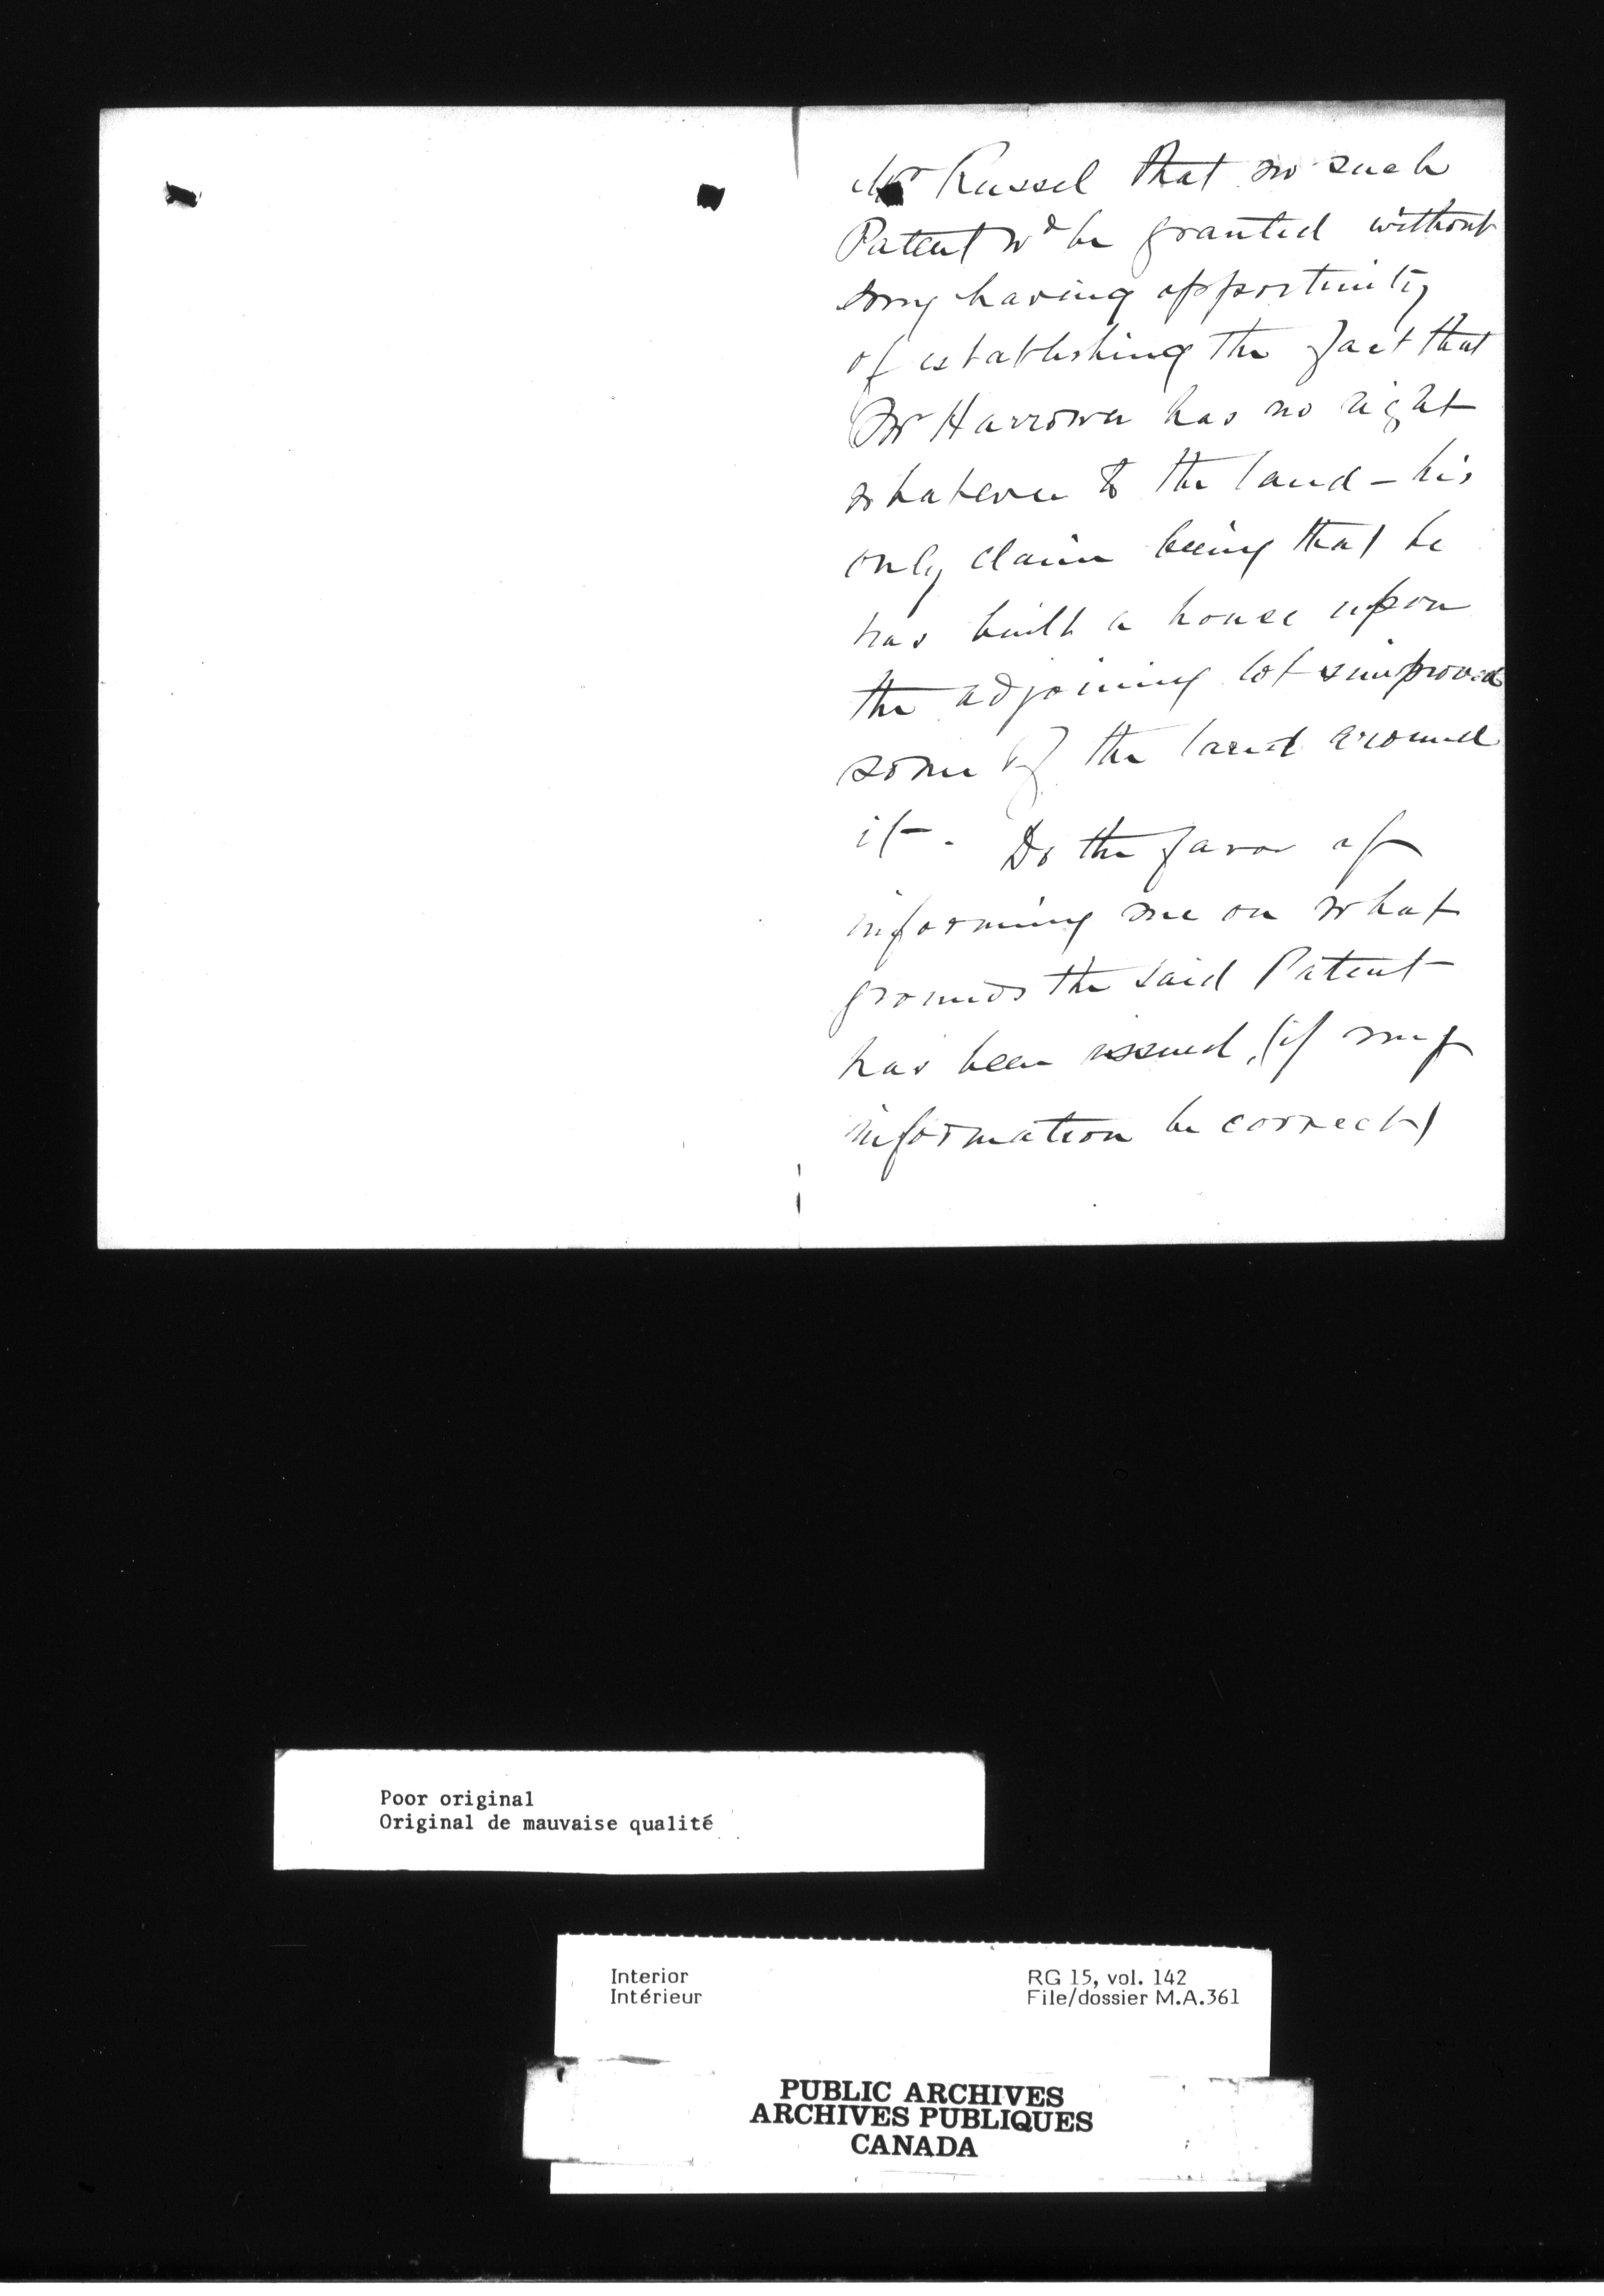 Mr Russel that no such
Patent wd be granted without
my having opportunity
of establishing the fact that
Mr Harrower has no right
whatever to the land – his
only claim being that he
has built a house upon
the adjoining lot & improved
some of the land around
it – . Do the favor of
informing me on what
grounds the said Patent
has been issued, (if my
information be correct)
Poor original
Original de mauvaise qualité
Interior
Intérieur
RG 15, vol. 142
File/dossier M.A.361
PUBLIC ARCHIVES
ARCHIVES PUBLIQUES
CANADA